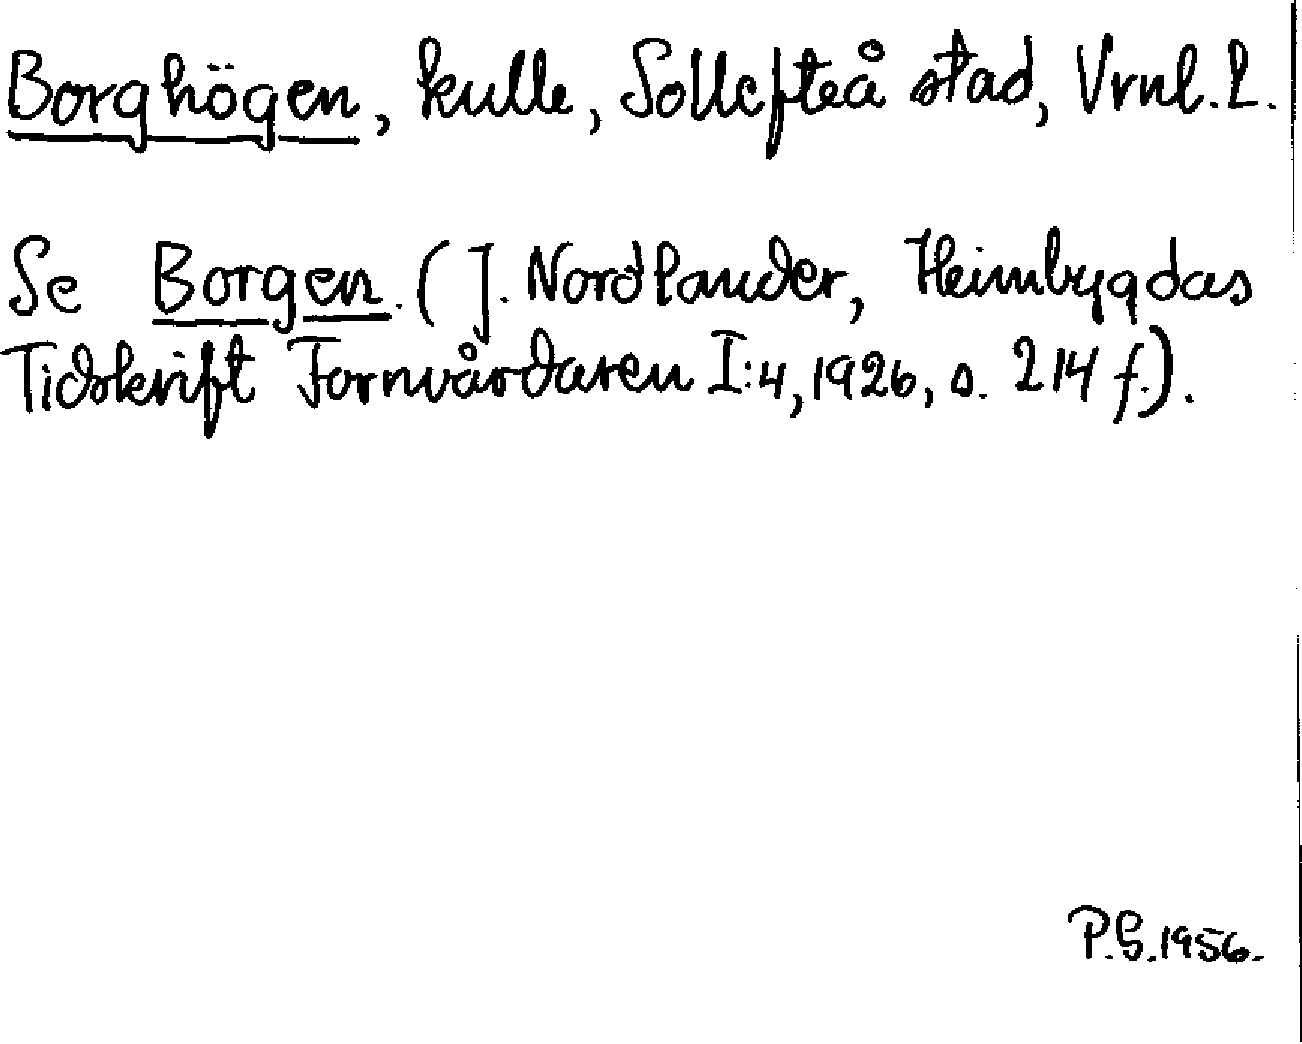 Borghögen, kulle, Sollefteå stad, Vrnl. L.
Se Borgen. (J. Nordlander, Heimbygdas
Tidskrift Fornvårdaren I:4, 1926, s. 214 f.).
P.G. 1956.